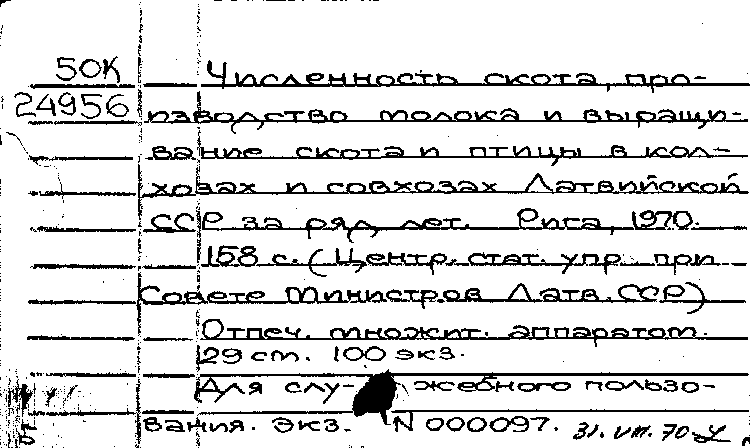 50К Численность скота, про-
24956 изводство молока и выращи-
вание скота и птицы в кол-
хозах и совхозах Латвийской
ССР за ряд лет. Рига, 1970.
158 с. (Центр. стат. упр. при
Совете Министров Латв. ССР)
Отпеч. множит. аппаратом.
29 cm. 100 экз.
Для слу- жебного пользо-
вания. Экз. N 000097. 31.VIII.70